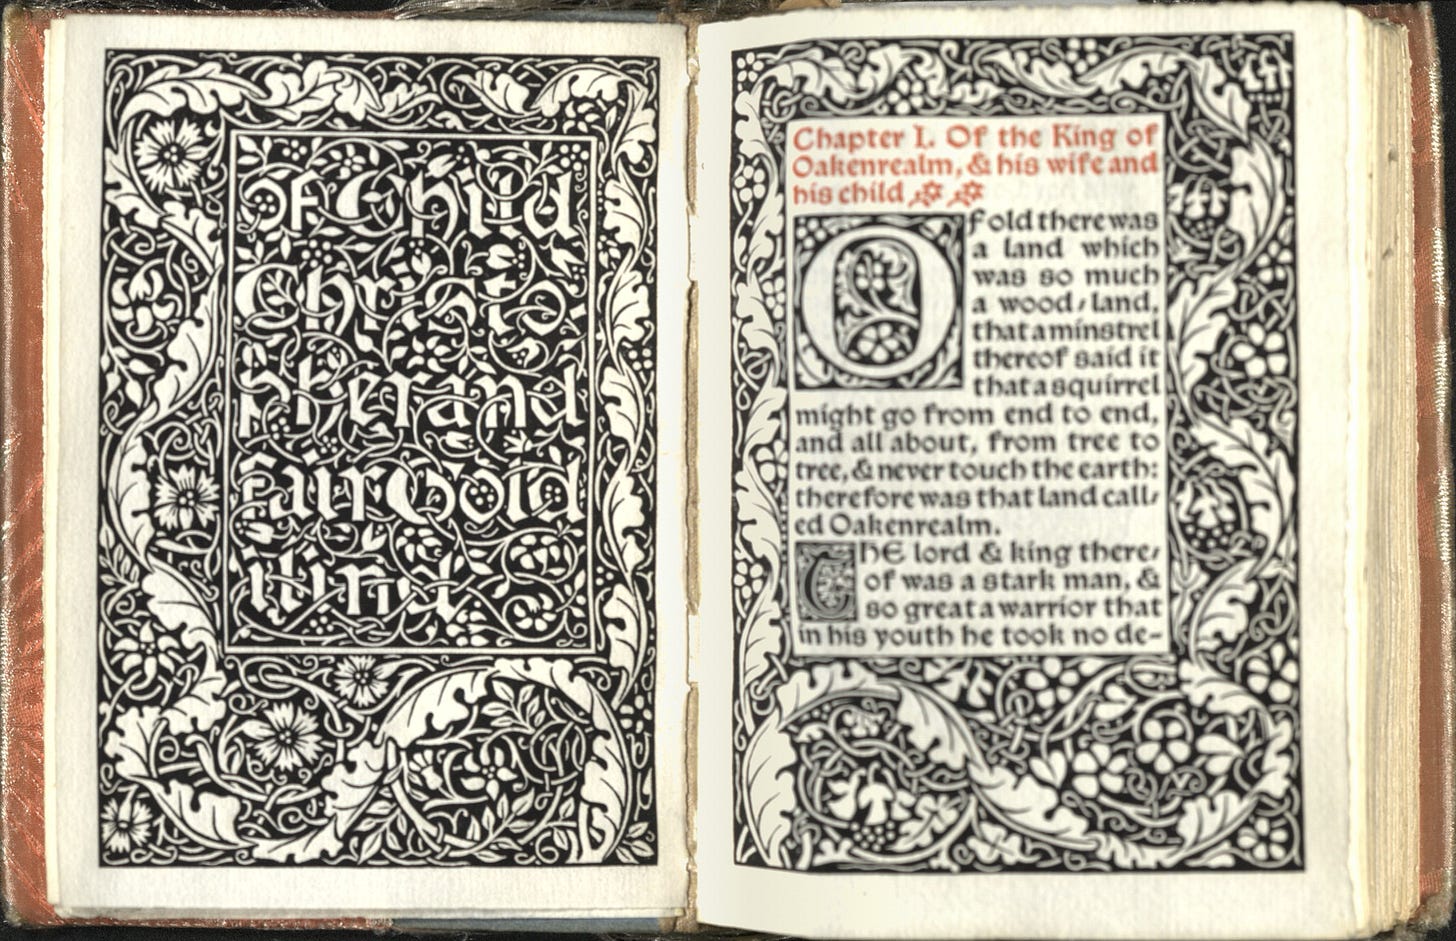 Of Child
Christo⸗
pher and
fair Gold
ilind
Chapter I. Of the King of
Oakenrealm, & his wife and
his child
Of old there was
a land which
was so much
a wood⸗land,
that a minstrel
thereof said it
that a squirrel
might go from end to end,
and all about, from tree to
tree, & never touch the earth:
therefore was that land call⸗
ed Oakenrealm.
THE lord & king there⸗
of was a stark man, &
so great a warrior that
in his youth he took no de-